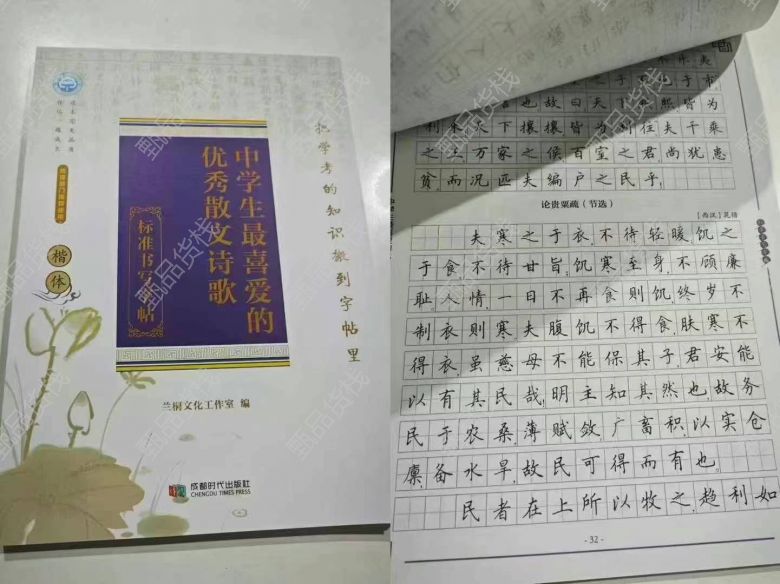 把学考的知识搬到字帖里
中学生最喜爱的
优秀散文诗歌
标准书写字帖
楷体
兰桐文化工作室 编
成都时代出版社
CHENGDU TIMES PRESS
甄品货栈
之于
于市
也故曰夫
熙皆为
利来天下攘攘皆为利往夫千乘
之王万家之侯百室之君尚犹患
贫,而况匹夫编户之民乎。
论贵粟疏(节选)
[西汉]晁错
夫寒之于衣,不待轻暖,饥之
于食,不待甘旨;饥寒至身,不顾廉
耻。人情,一日不再食则饥,终岁不
制衣则寒。夫腹饥不得食,肤寒不
得衣,虽慈母不能保其子,君安能
以有其民哉?明主知其然也,故务
民于农桑,薄赋敛,广畜积,以实仓
廪,备水旱,故民可得而有也。
民者,在上所以牧之,趋利如
- 32 -